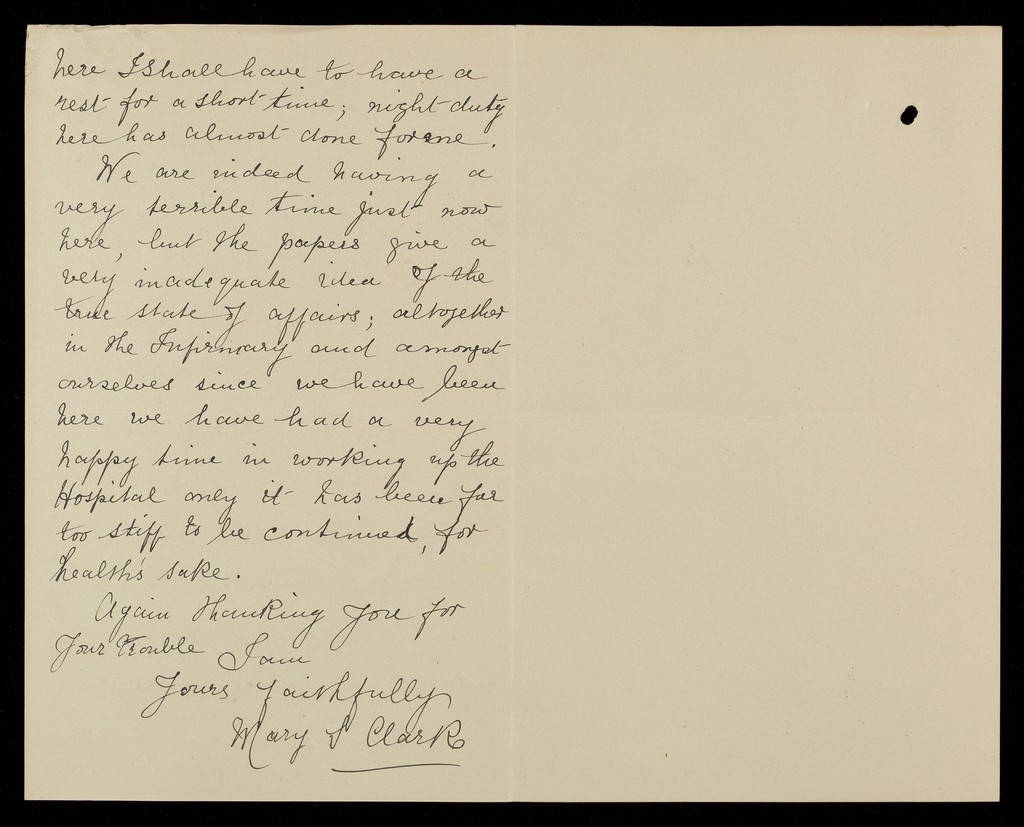 here I shall have to have a
rest for a short time; night duty
here has almost done for me.
We are indeed having a
very terrible time just now
here, but the papers give a
very inadequate idea of the
true state of affairs; altogether
in the Infirmary and amongst
ourselves since we have been
here we have had a very
happy time in working up the
Hospital only it has been far
too stiff to be continued, for
health's sake.
Again thanking you for
Your trouble I am
Yours faithfully
Mary S Clark